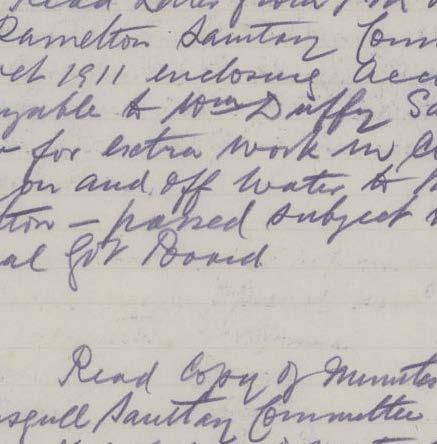 Read Letter from
Ramelton Sanitary Com
Oct 1911 enclosing acc
yable to Wm Duffy Sa
for extra work in
on and off water to
ton — passed subject
al Govt Board
Read Copy of Minutes
Sanitary Committee